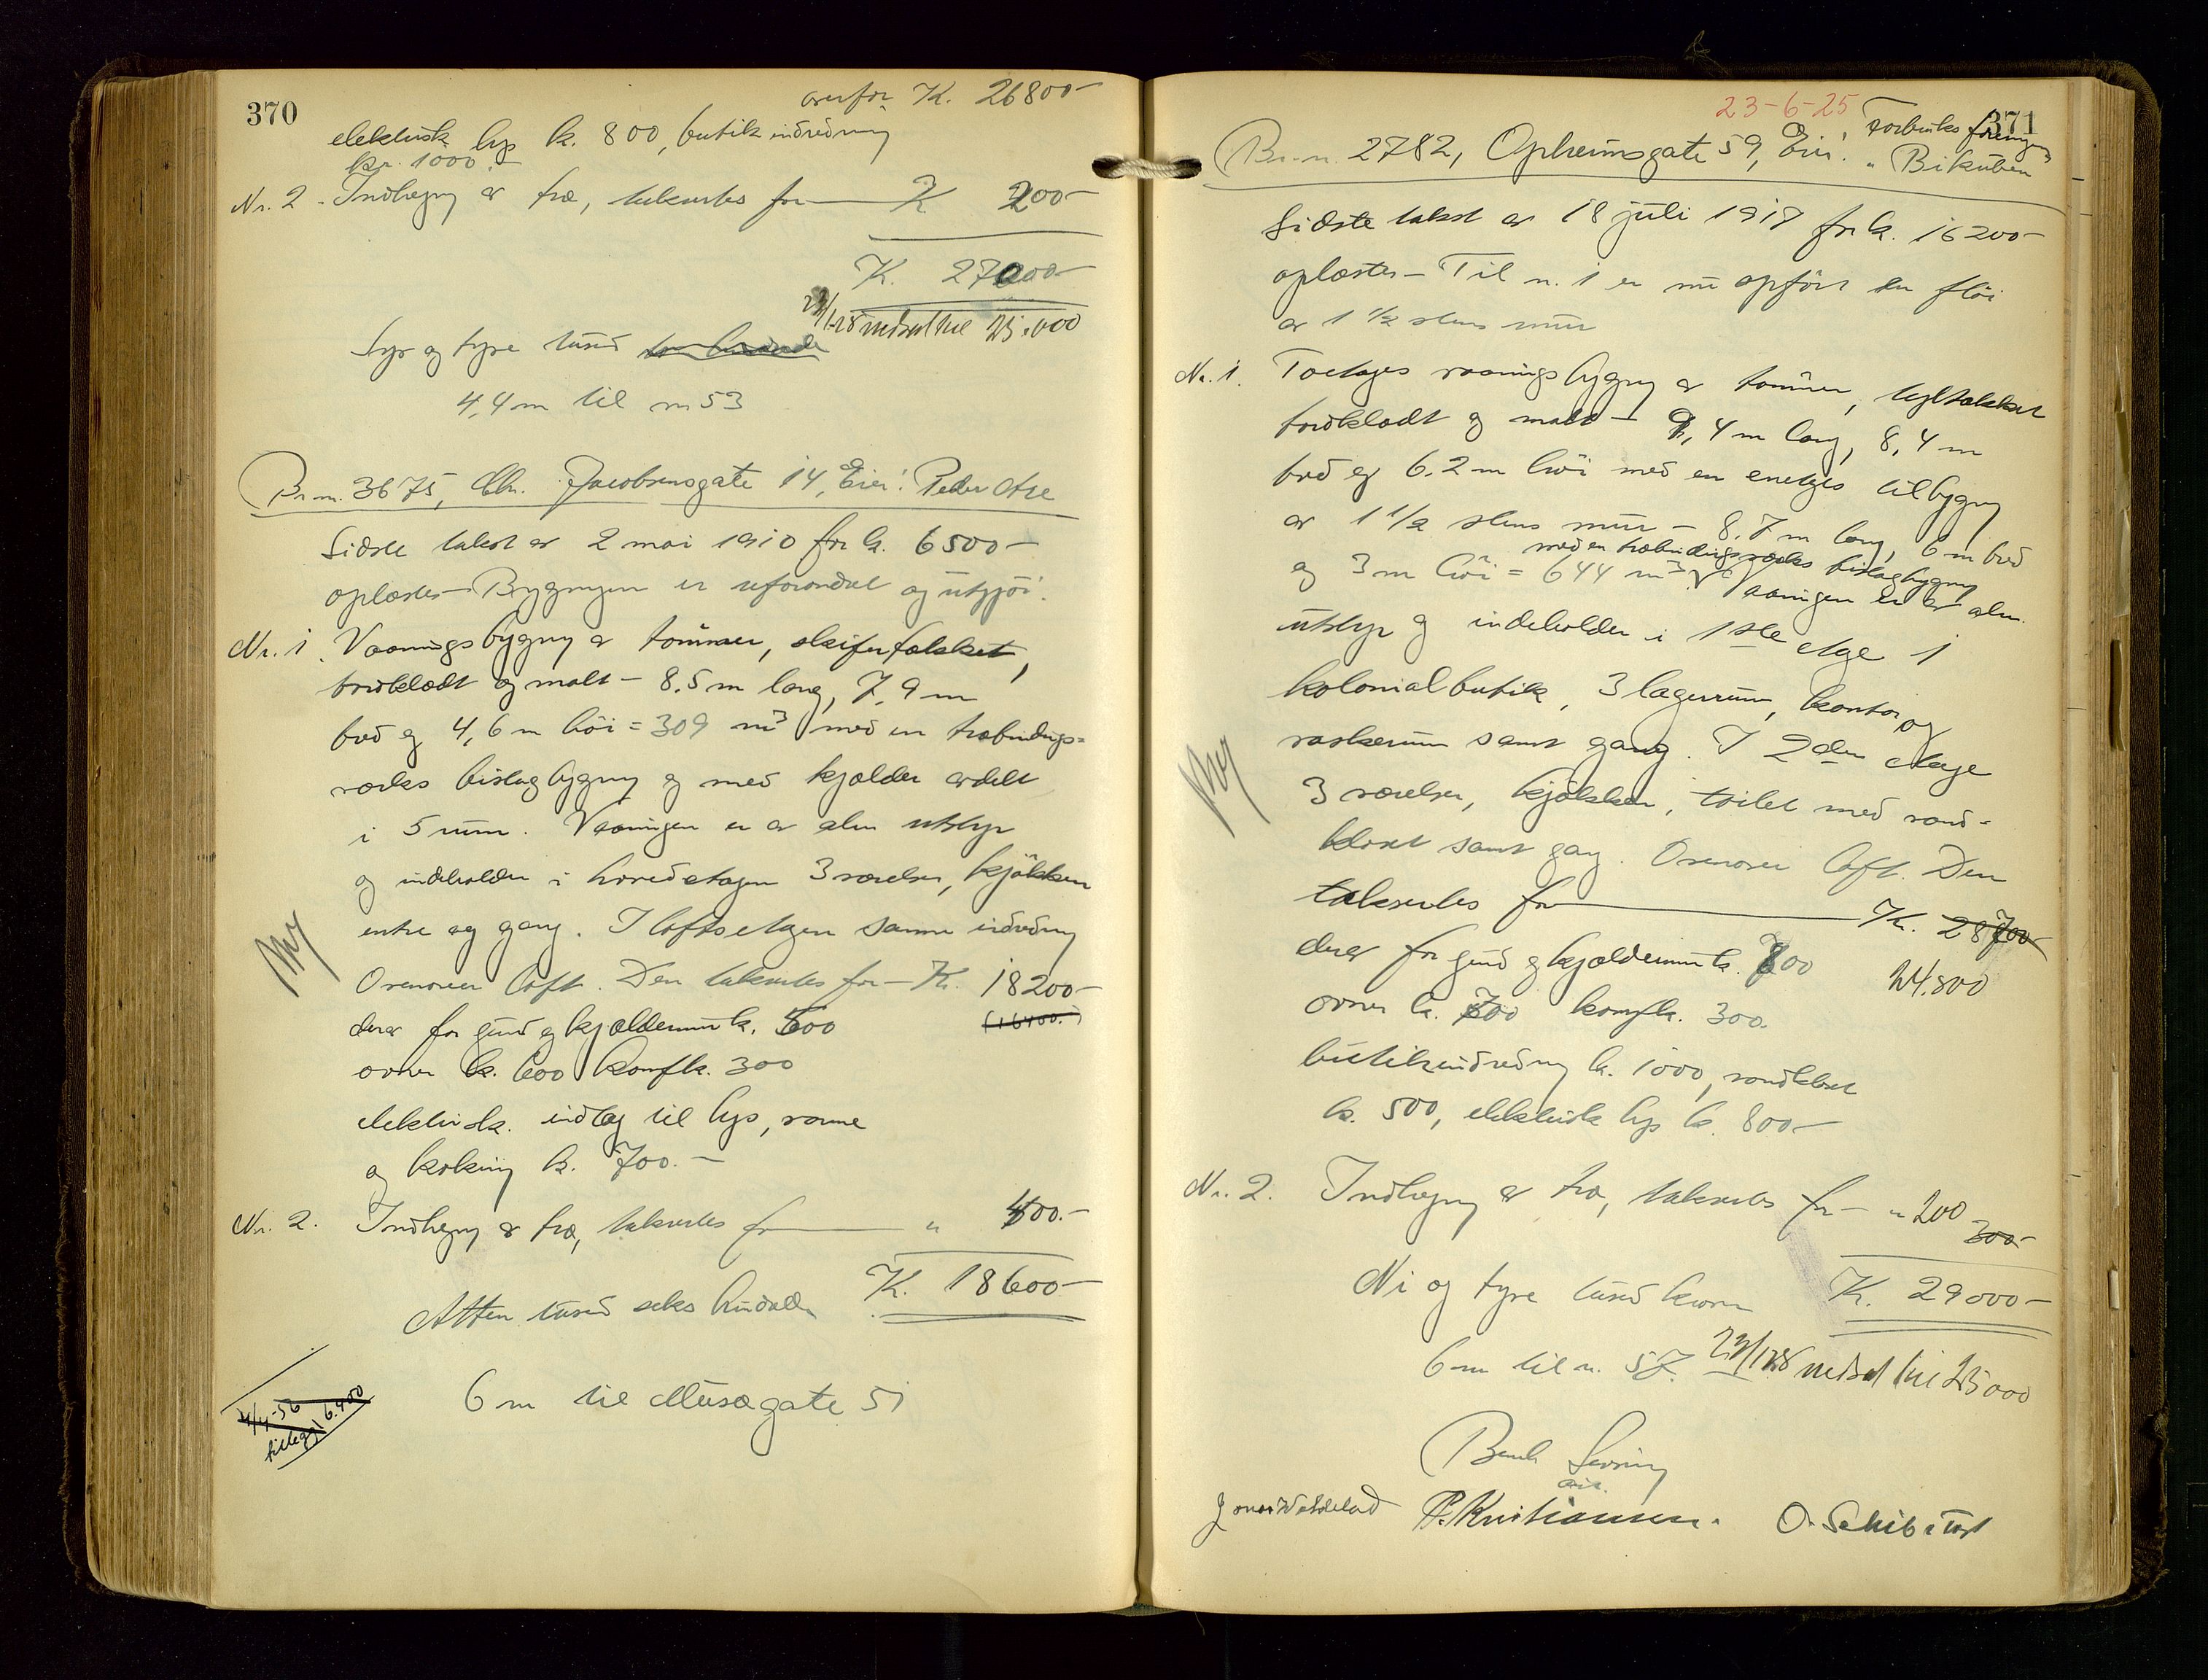 370
overför K. 26800-
elektrisk lys k. 800, butikindredning
kr. 1000.-
Nr. 2 - Indhegn av træ, takseres for K 200-
K. 27000-
23/1-28 nedsat til 25.000
Syv og tyve tusind
4,4 m til nr 53
Br. nr. 3675, Chr. Jacobsensgate 14, Eier: Peder Are
Sidste takst av 2 mai 1910 for k. 6500-
oplæstes - Bygningen er reforandret og utgjör:
Nr. 1. Vaaningsbygning av tömmer, skifertækket,
bordklædt og malt - 8.5 m lang, 7,9 m
bred og 4,6 m höi = 309 m3 med en træbindings-
verks bislagbygning og med kjælder avdelt
i 5 rum. Vaaningen er av alm utstyr
og indeholder i hovedetagen 3 værelser, kjökken
entre og gang. I loftsetagen samme indredning
Ovenover loft. Den takseres for - Kr. 18200-
derav for grund og kjælderrum k. 500 (16400.-)
ovner k. 600 komfk. 300
elektrisk. indlæg til lys, varme
og kokning k. 700.-
Nr. 2. Indhegn av træ, takseres for " 400.-
K. 18600-
Atten tusind seks hundrede
4/4-56
tillegg 6.400
6 m til Musægate 51
23-6-25
371
Br. nr. 2782, Opheimsgate 59, Eier: Forbruksforeningen
"Bikuben"
Sidste takst av 18 juli 1917 for k. 16200-
oplæstes - Til nr. 1 er nu opfört en flöi
av 1 1/2 stens mur
Nr. 1. Toetages vaaningsbygning av tömmer, tegltækket
bordklædt og malt - 9,4 m lang, 8,4 m
bred og 6.2 m höi med en enetages tilbygning
av 1 1/2 stens mur - 8.7 m lang, 6 m bred
med en træbindingsverks bislagbygning
og 3 m höi = 644 m3. Vaaningen er av alm.
utstyr og indeholder i 1ste etage 1
kolonialbutik, 3 lagerrum, kontor og
vaskerum samt gang. I 2den etage
3 værelser, kjökken, toilet med vand-
kloset samt gang. Ovenover loft. Den
takseres for Kr. 28700-
derav for grund og kjælderrum k. 800 24.800
ovner k. 700 komfk. 300.
butikindredning k. 1000, vandkloset
k. 500, elektrisk lys k. 800-
Nr. 2. Indhegn av træ, takseres for - " 200
300-
Ni og tyve tusind kroner K. 29000-
6 m til nr. 57. 23/1 28 nedsat til 25000
Bernh Sevring
P. Kristiansen. O. Schibstad